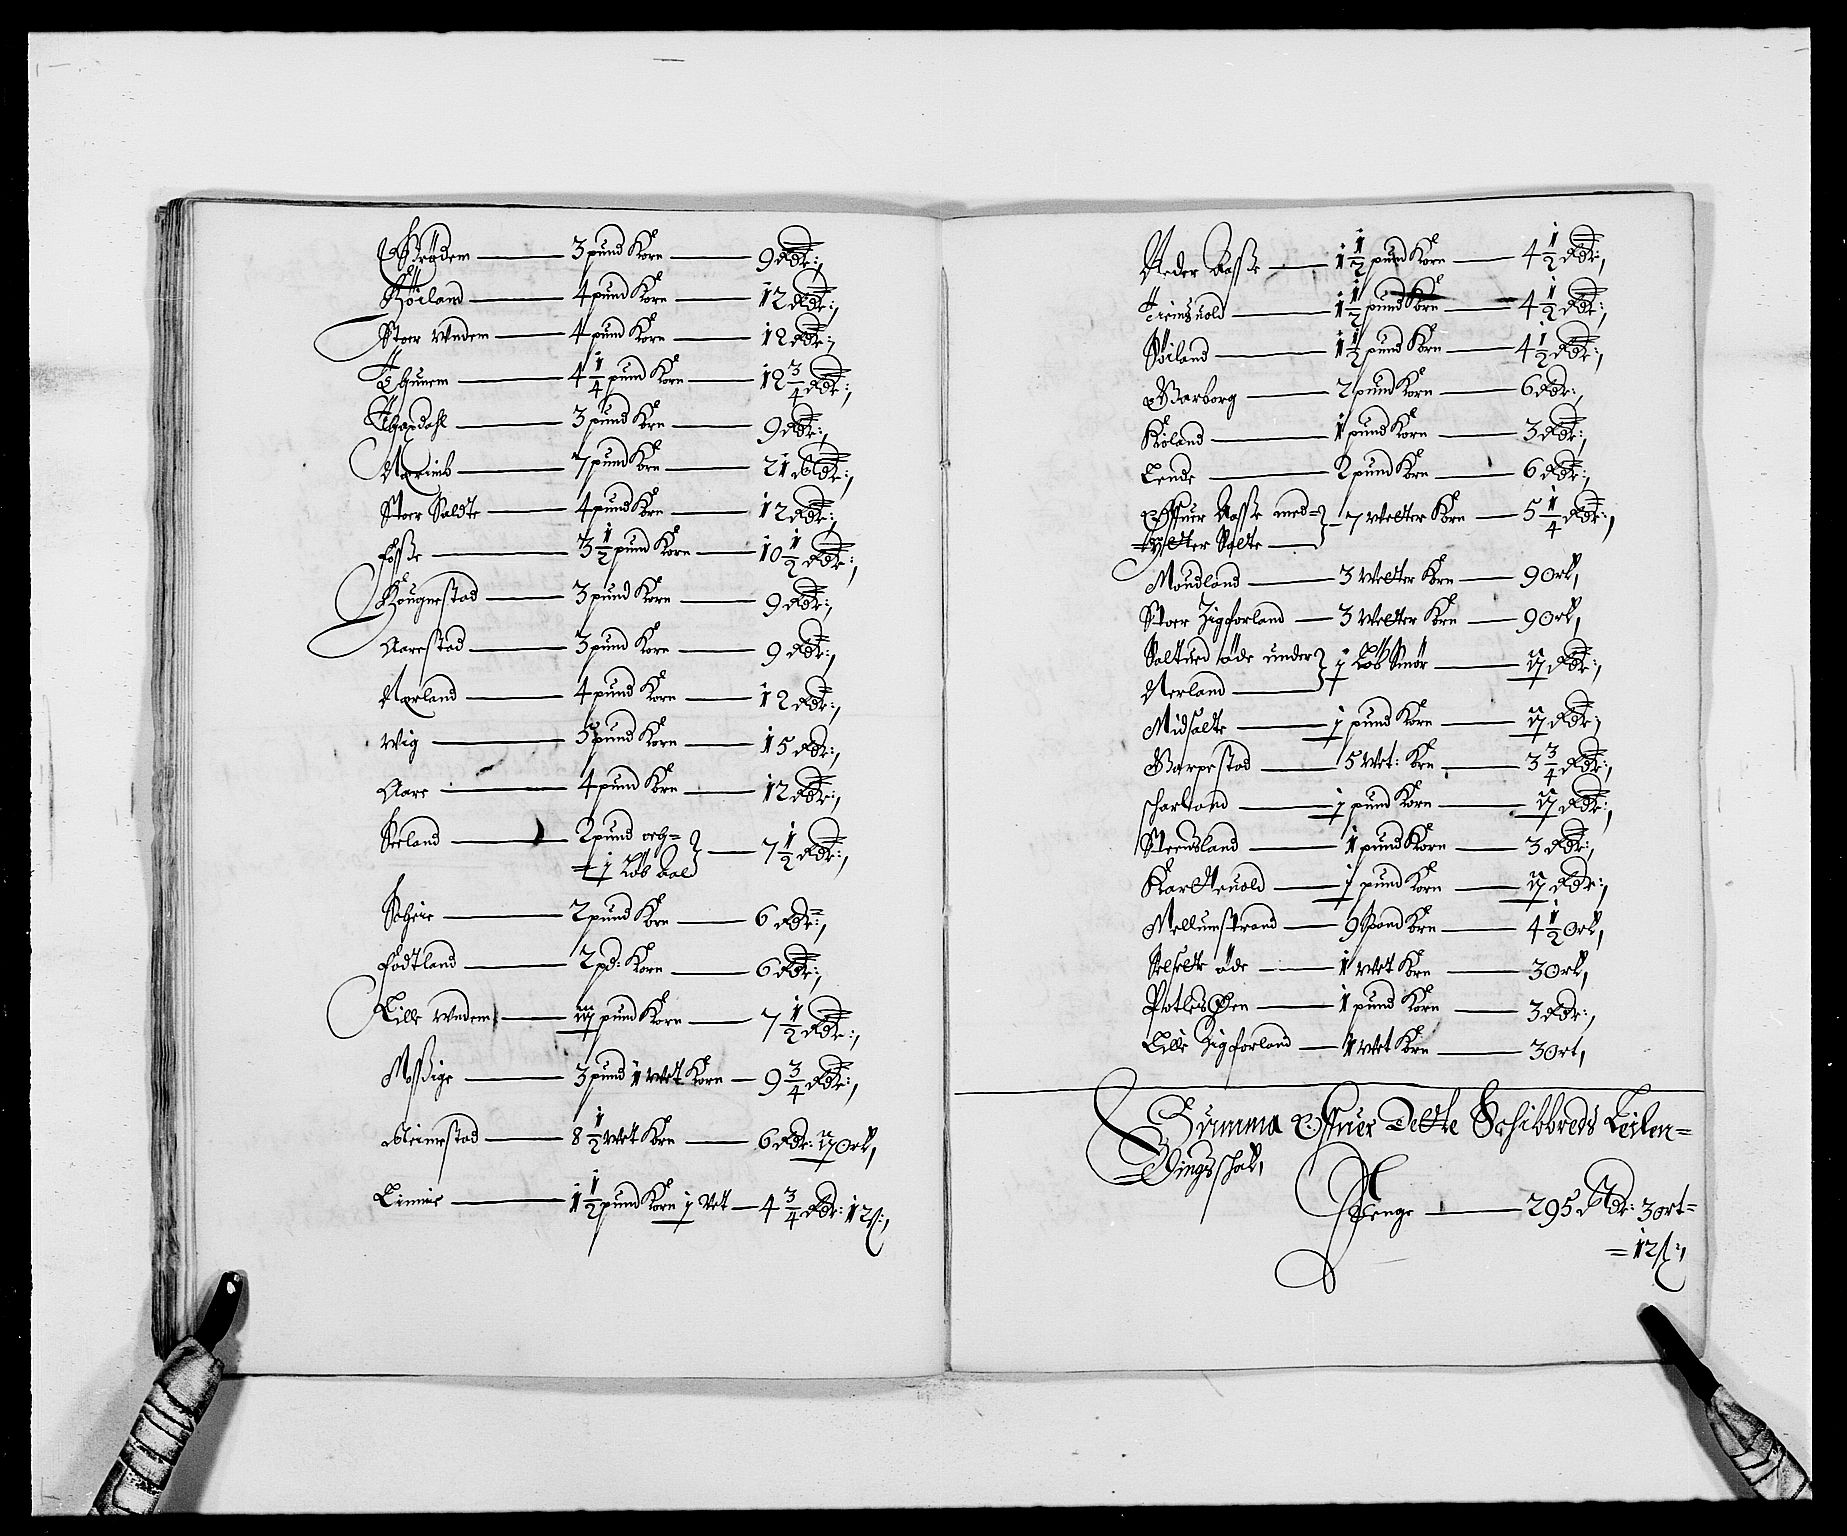 Brödem — 3 pund Korn — 9 Rdr:,
Höiland — 4 pund Korn — 12 Rdr:,
Stoer Undem — 4 pund Korn — 12 Rdr:,
Thunem — 4 1/4 pund Korn — 12 3/4 Rdr:,
Haardahl — 3 pund Korn — 9 Rdr:,
Nærimb — 7 pund Korn — 21 Rdr:,
Stoer Salte — 4 pund Korn — 12 Rdr:,
Fosse — 3 1/2 pund Korn — 10 1/2 Rdr:,
Hougnestad — 3 pund Korn — 9 Rdr:,
Aarestad — 3 pund Korn — 9 Rdr:,
Nærland — 4 pund Korn — 12 Rdr:,
Wig — 5 pund Korn — 15 Rdr:,
Aare — 4 pund Korn — 12 Rdr:,
Seeland — 2 pund och=
= j Løb Aald — 7 1/2 Rdr:,
Scheie — 2 pund Korn — 6 Rdr:,
Fodtland — 2 pd: Korn — 6 Rdr:,
Lille Undem — ij pund Korn — 7 1/2 Rdr:,
Mossige — 3 pund 1 Wet Korn — 9 3/4 Rdr:,
Meinestad — 8 1/2 Wet Korn — 6 Rdr: ij Ort,
Linnie — 1 1/2 pund Korn j Vet — 4 3/4 Rdr: 12 s:,
Neder Aasse — 1 1/2 pund Korn — 4 1/2 Rdr:,
Tiensuold — 1 1/2 pund Korn — 4 1/2 Rdr:,
Höiland — 1 1/2 pund Korn — 4 1/2 Rdr:,
Warborg — 2 pund Korn — 6 Rdr:,
Kioland — 1 pund Korn — 3 Rdr:,
Lende — 2 pund Korn — 6 Rdr:,
Offuer Aasse med=
=Ytter Salte — 7 Wetter Korn — 5 1/4 Rdr:,
Moudland — 3 Wetter Korn — 9 Ort,
Stoer Zigforland — 3 Wetter Korn — 9 Ort,
öde under
Nerland — j Løb Smör — ij Rdr:,
Midsalte — j pund Korn — ij Rdr:,
Warpestad — 5 Wet: Korn — 3 3/4 Rdr:,
Scharland — j pund Korn — ij Rdr:,
Steensland — 1 pund Korn — 3 Rdr:,
Karlleuold — j pund Korn — ij Rdr:,
Mellumstrand — 9 Spand Korn — 4 1/2 Ort,
öde — 1 Wet Korn — 3 Ort,
— 1 pund Korn — 3 Rdr:,
Lille Zigforland — 1 Wet Korn — 3 Ort,
Summa Offuer Dette Schibbreds Leilen=
=Dings schat,
Penge — 295 Rdr: 3 ort=
= 12 s:,